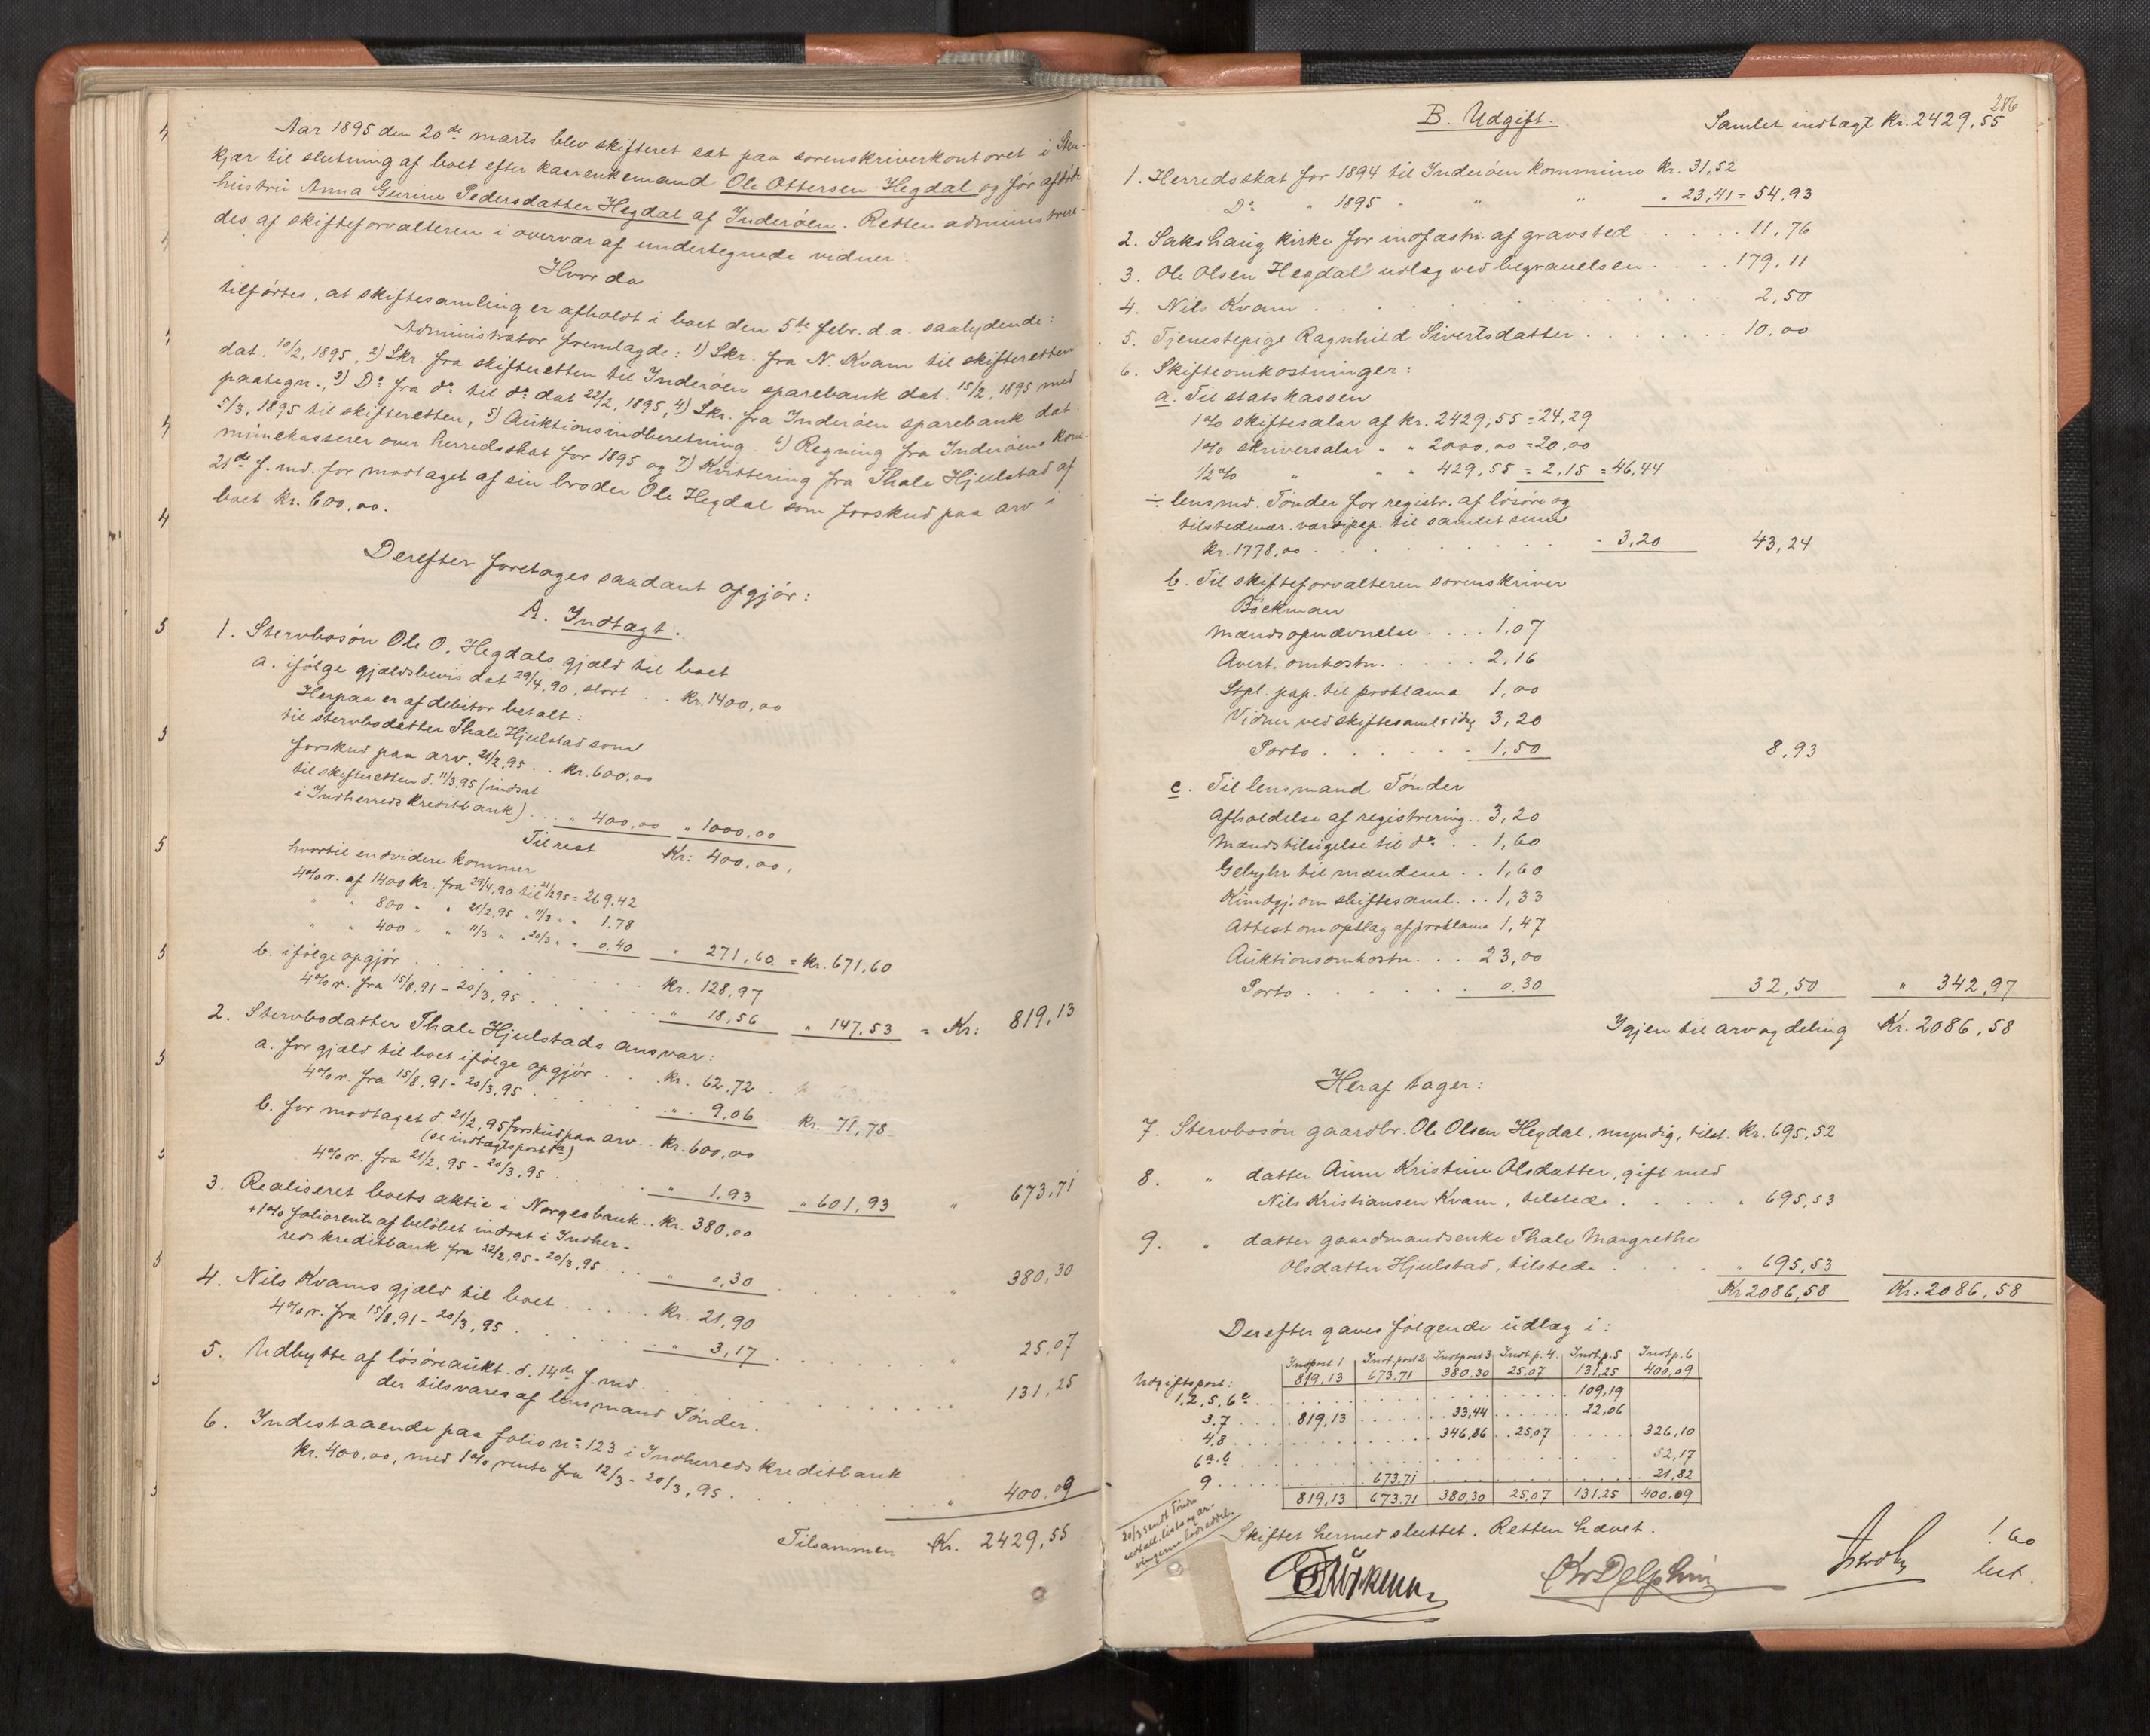 Aar 1895 den 20de marts blev skifteret sat paa sorenskriverkontoret i Sten-
kjær til slutning af boet efter kaarenkemand Ole Ottersen Hegdal og før afdøde
hustru Anna Gurine Pedersdatter Hegdal af Inderøen. Retten administrere-
des af skifteforvalteren i overvær af undertegnede vidner.
Hvorda
tilførtes, at skiftesamling er afholdt i boet den 5te febr. d.a. saalydende:
Administrator fremlagde: 1) Skr. fra N. Kvam til skifteretten
dat. 10/2, 1895, 2) Skr. fra skifteretten til Inderøen sparebank dat. 15/2, 1895 med
paategn., 3) Do fra do til do dat 22/2, 1895, 4) Skr. fra Inderøen sparebank dat.
5/3, 1895 til skifteretten, 5) Auktionsindberetning. 6) Regning fra Inderøens kom-
munekasserer over herredsskat for 1895 og 7) Kvittering fra Thale Hjulstad af
21de f. md. for modtaget af sin broder Ole Hegdal som forskud paa arv i
boet kr. 600,00.
Derefter foretoges saadant opgjør:
A. Indtægt.
1. Stervbosøn Ole O. Hegdals gjæld til boet
a. ifølge gjældsbevis dat 29/4, 90, stort . . kr. 1400,00
Herpaa er af debitor betalt:
til stervbodatter Thale Hjulstad som
forskud paa arv. 21/2,95 . . kr. 600,00
til skifteretten d. 11/3,95 (indsat
i Indherreds kreditbank) . . " 400,00 " 1000,00
Til rest Kr: 400,00,
hvortil endvidere kommer
4% r. af 1400 kr. fra 29/4,90 til 21/2 95 = 269,42
" " 800 " " 21/2,95 " 11/3 " " 1,78
" " 400 " " 11/3 " " 20/3 " = 0.40 " 271,60. = kr. 671,60
b. ifølge opgjør . . . . . . kr. 128,97
4% r. fra 15/8,91 - 20/3,95 . . . . " 18,56 " 147.53 = Kr: 819,13
2. Stervbodatter Thale Hjulstads ansvar:
a. for gjæld til boet ifølge opgjør . . . kr. 62,72
4% r. fra 15/8,91 - 20/3,95 . . . . " 9,06 kr. 71,78
b. for modtaget d. 21/2,95 forskud paa arv . . kr. 600,00
(se indtægtspost 1a)
4% r. fra 21/2,95 - 20/3,95 . . . . " 1,93 " 601,93 " 673,71
3. Realiseret boets aktie i Norges bank . . kr. 380,00
+ 1% foliorente af beløbet indsat i Indher-
reds kreditbank fra 22/2,95 - 20/3,95 . . . " 0,30 . . . . " 380,30
4. Nils Kvams gjæld til boet . . . . . kr. 21,90
4% r. fra 15/8,91 - 20/3,95 . . . . " 3,17 . . . . " 25,07
5. Udbytte af løsøreaukt. d. 14de f. md. . . . . . . " 131,25
der tilsvares af lensmand Tønder.
6. Indestaaende paa folio no 123 i Indherreds kreditbank
kr. 400,00, med 1% rente fra 12/3 - 20/3,95 . . . . " 400,09
Tilsammen Kr. 2429,55
286
B. Udgift. Samlet indtægt kr. 2429,55
1. Herredsskat for 1894 til Inderøen kommune kr. 31,52
Do " 1895 " " " " 23,41 = 54,93
2. Sakshaug kirke for indfæstn. af gravsted . . . . . 11,76
3. Ole Olsen Hegdals udlæg ved begravelsen . . . . 179,11
4. Nils Kvam . . . . . . . . . . . . 2,50
5. Tjenestepige Ragnhild Sivertsdatter . . . . . . 10.00
6. Skifteomkostninger:
a. Til statskassen
1% skiftesalar af kr. 2429,55 = 24,29
1% skriversalar " " 2000,00 = 20,00
1/2% " " " 429,55 = 2,15 = 46,44
÷ lensmd. Tønder for registr. af løsøre og
tilstedevær. værdipap. til samlet sum
kr. 1778,00 . . . . . . . . . " 3,20 43,24
b. Til skifteforvalteren sorenskriver
Bøckman
Mændsopnævnelse . . . . 1,07
Avert. omkostn. . . . . . 2,16
Stpl. pap. til proklama 1,00
Vidner ved skiftesaml. idag 3,20
Porto . . . . . . 1,50 8,93
c. Til lensmand Tønder
Afholdelse af registrering . . 3,20
Mændstilsigelse til do . . 1,60
Gebyhr til mændene . . 1,60
Kundgj. om skiftesaml. . . 1,33
Attest om opslag af proklama 1,47
Auktionsomkostn. . . . 23,00
Porto . . . . . . 0.30 32,50 " 342,97
Igjen til arv og deling Kr. 2086,58
Heraf tager:
7. Stervbosøn gaardbr. Ole Olsen Hegdal, myndig, tilst. kr. 695,52
8. " datter Anne Kristine Olsdatter, gift med
Nils Kristiansen Kvam, tilstede . . . . " 695,53
9. " datter gaardmandsenke Thale Margrethe
Olsdatter Hjulstad, tilstede . . . . " 695,53
Kr 2086,58 Kr. 2086,58
Derefter gaves følgende udlæg i:
Indtpost 1 Indt.post 2 Indtpost 3 Indt.p. 4. Indt.p. 5 Indt.p. 6
Udgiftspost: 819,13 673,71 380,30 25,07 131,25 400,09
1,2,5,6c . . . . . . 109,19
3.7 . . . . 819,13 . . . . 33,44 . . . . 22,06
4,8 . . . . . . 346,86 . . 25,07 . . . . 326,10
6a.b . . . . . . 52,17
9 . . . . . . 673.71 . . . . . . 21,82
819,13 673.71 380,30 25,07 131,25 400.09
20/3 sendt Tønder
Skiftet hermed sluttet. Retten hævet.
Chr Delphin